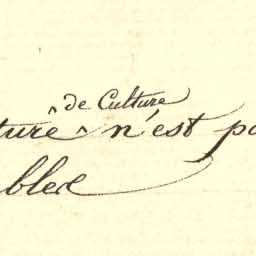 de Culture
ture ^ n'est pa
blese